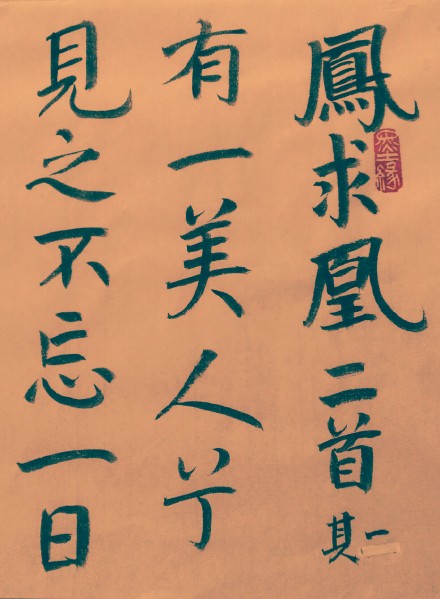 鳳求凰二首其一
有一美人兮
見之不忘一日